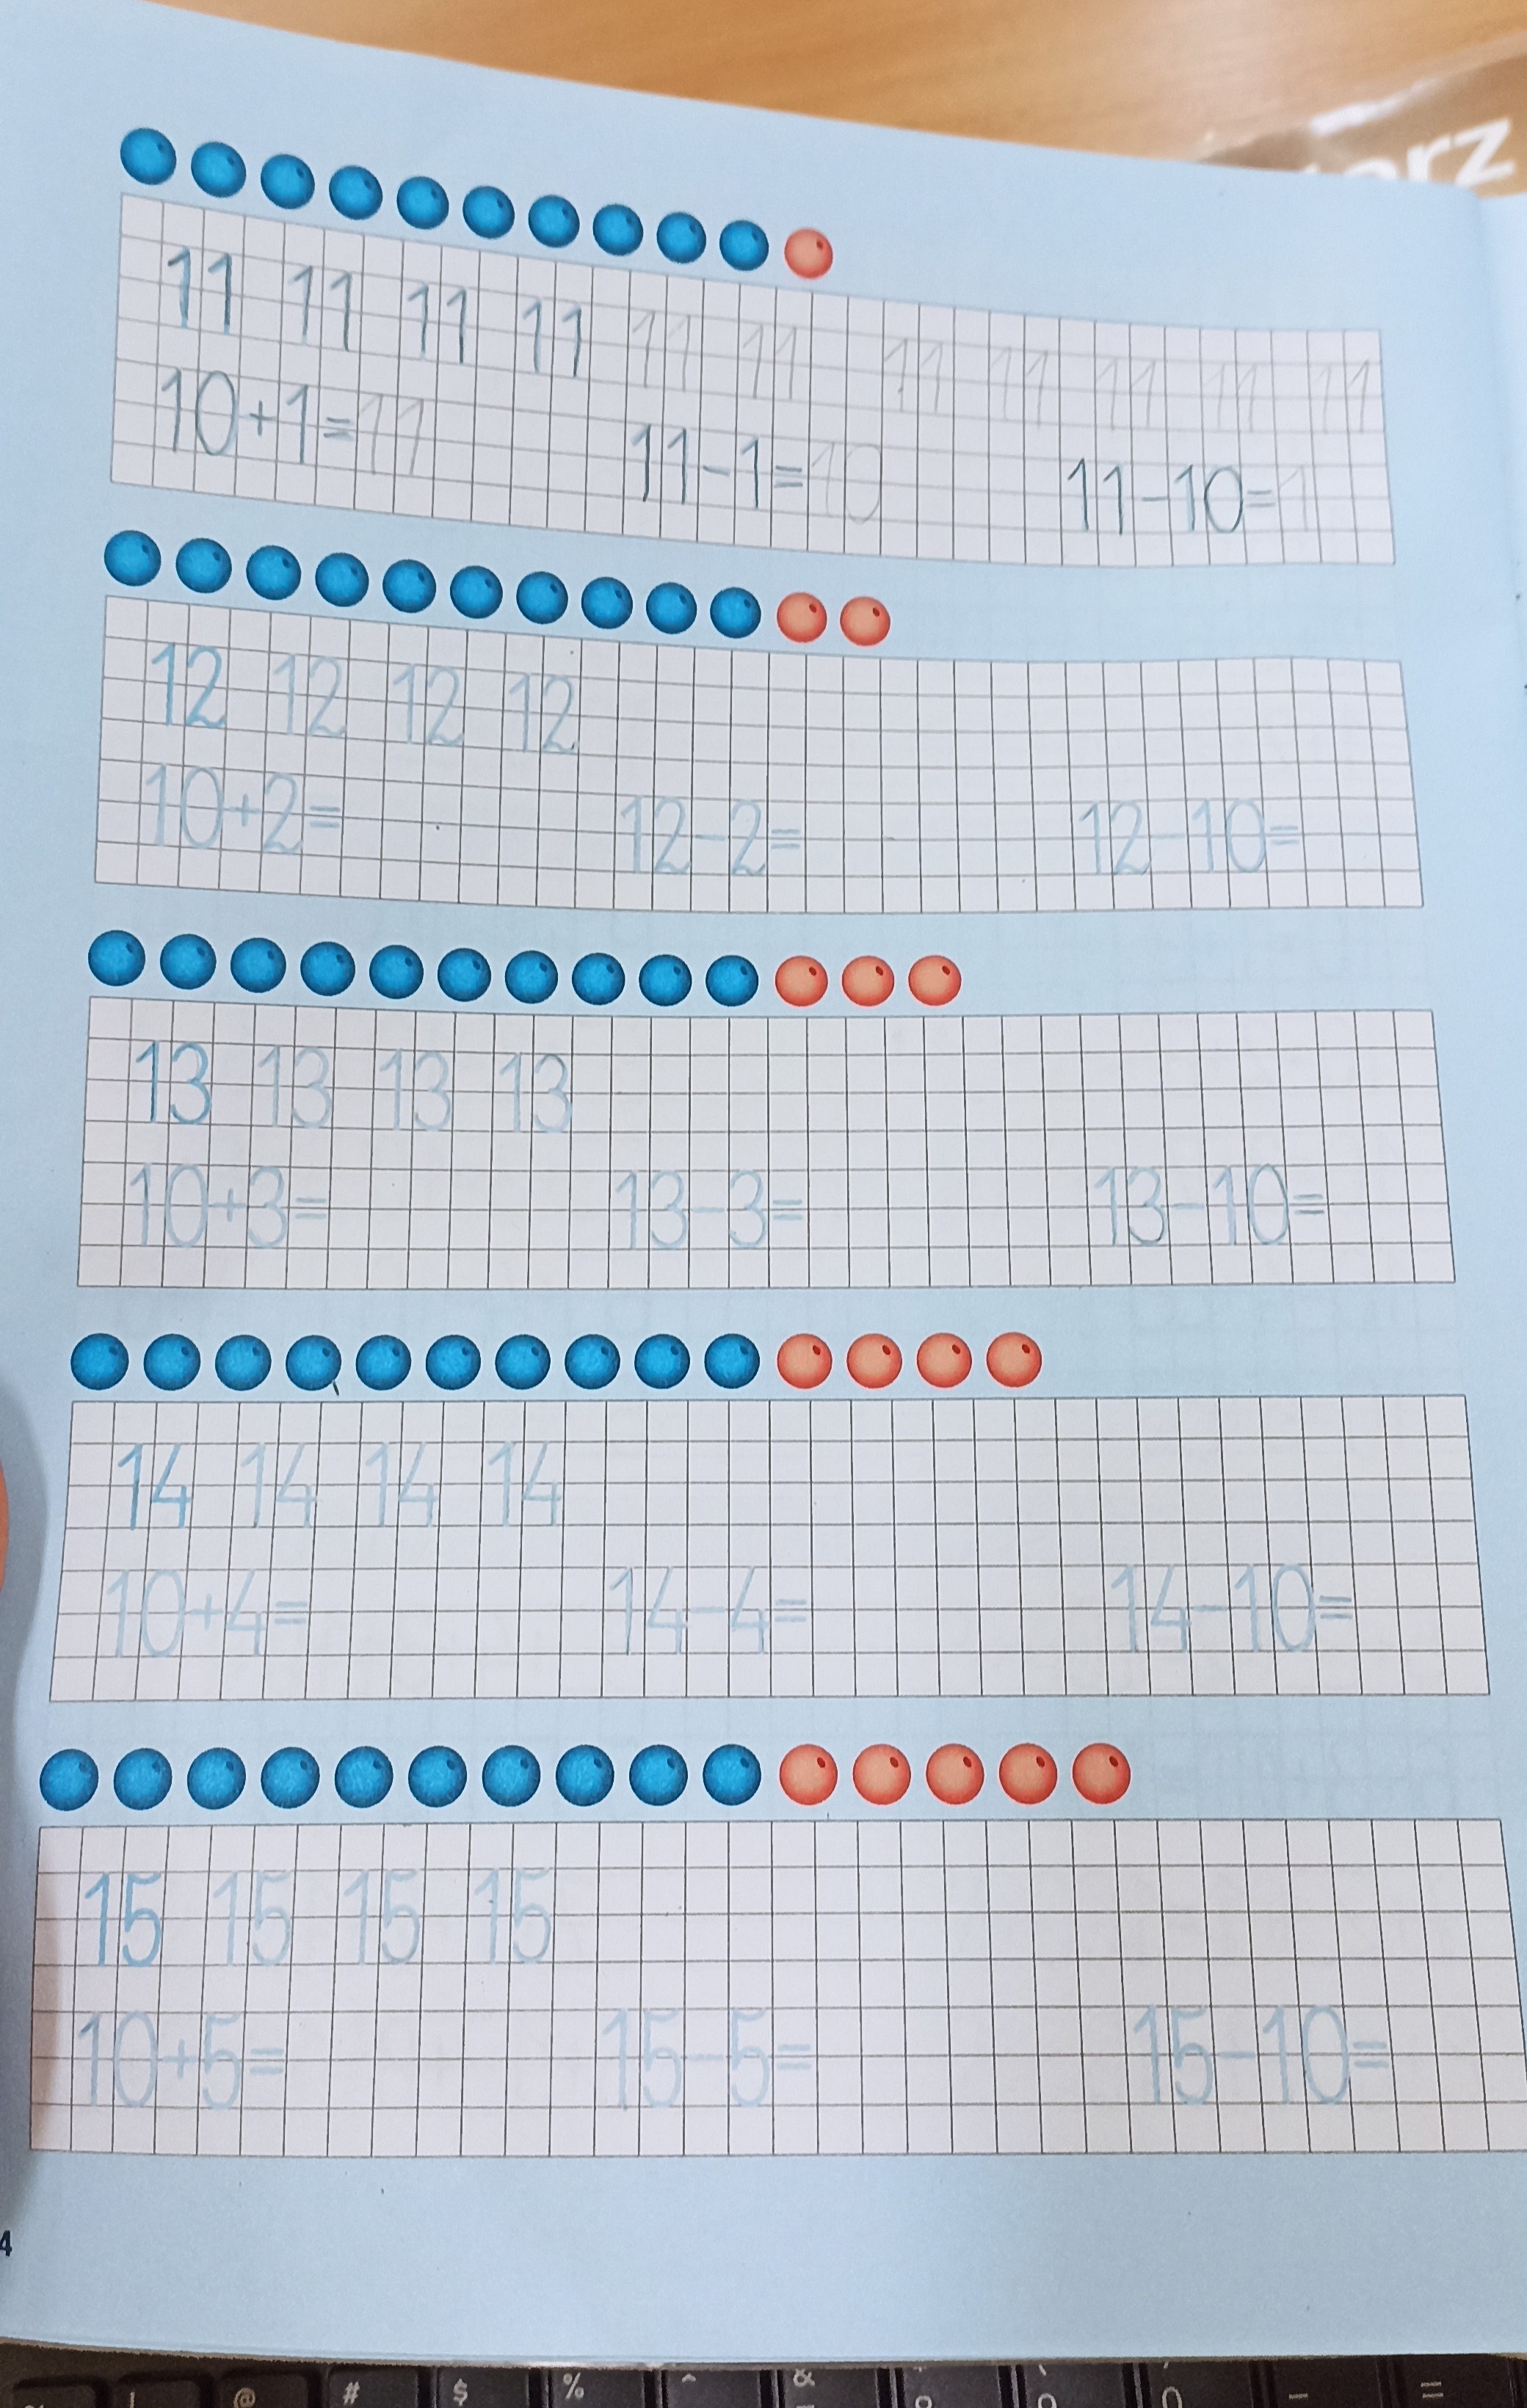 11 11 11 11 11 11 11 11 11 11 11
10+1=11 11-1=10 11-10=1
12 12 12 12
10+2= 12-2= 12-10=
13 13 13 13
10+3= 13-3= 13-10=
14 14 14 14
10+4= 14-4= 14-10=
15 15 15 15
10+5= 15-5= 15-10=
4
@ # $ % ^ &